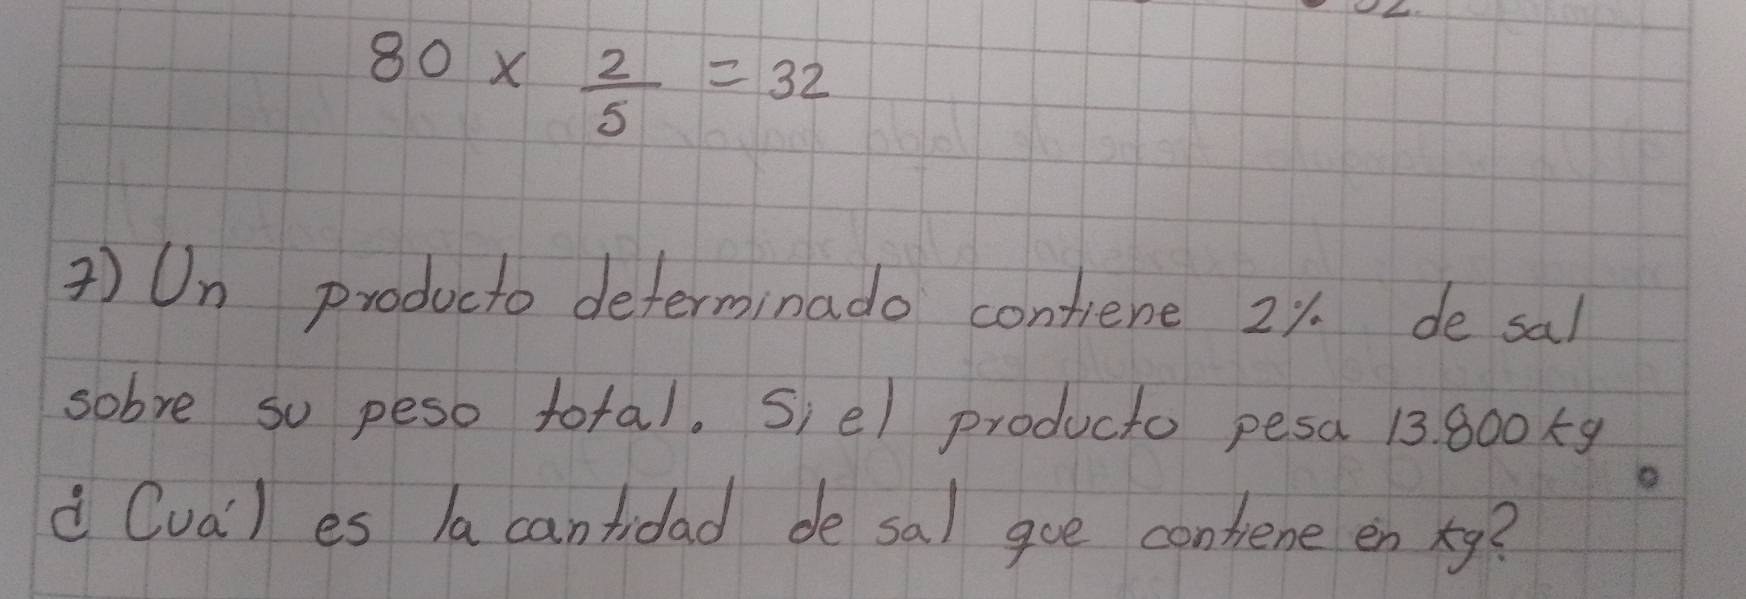 80 x 2/5 = 32
7) Un producto determinado contiene 2% de sal
sobre su peso total. Si el producto pesa 13.800 kg.
¿Cuál es la cantidad de sal que contiene en kg?